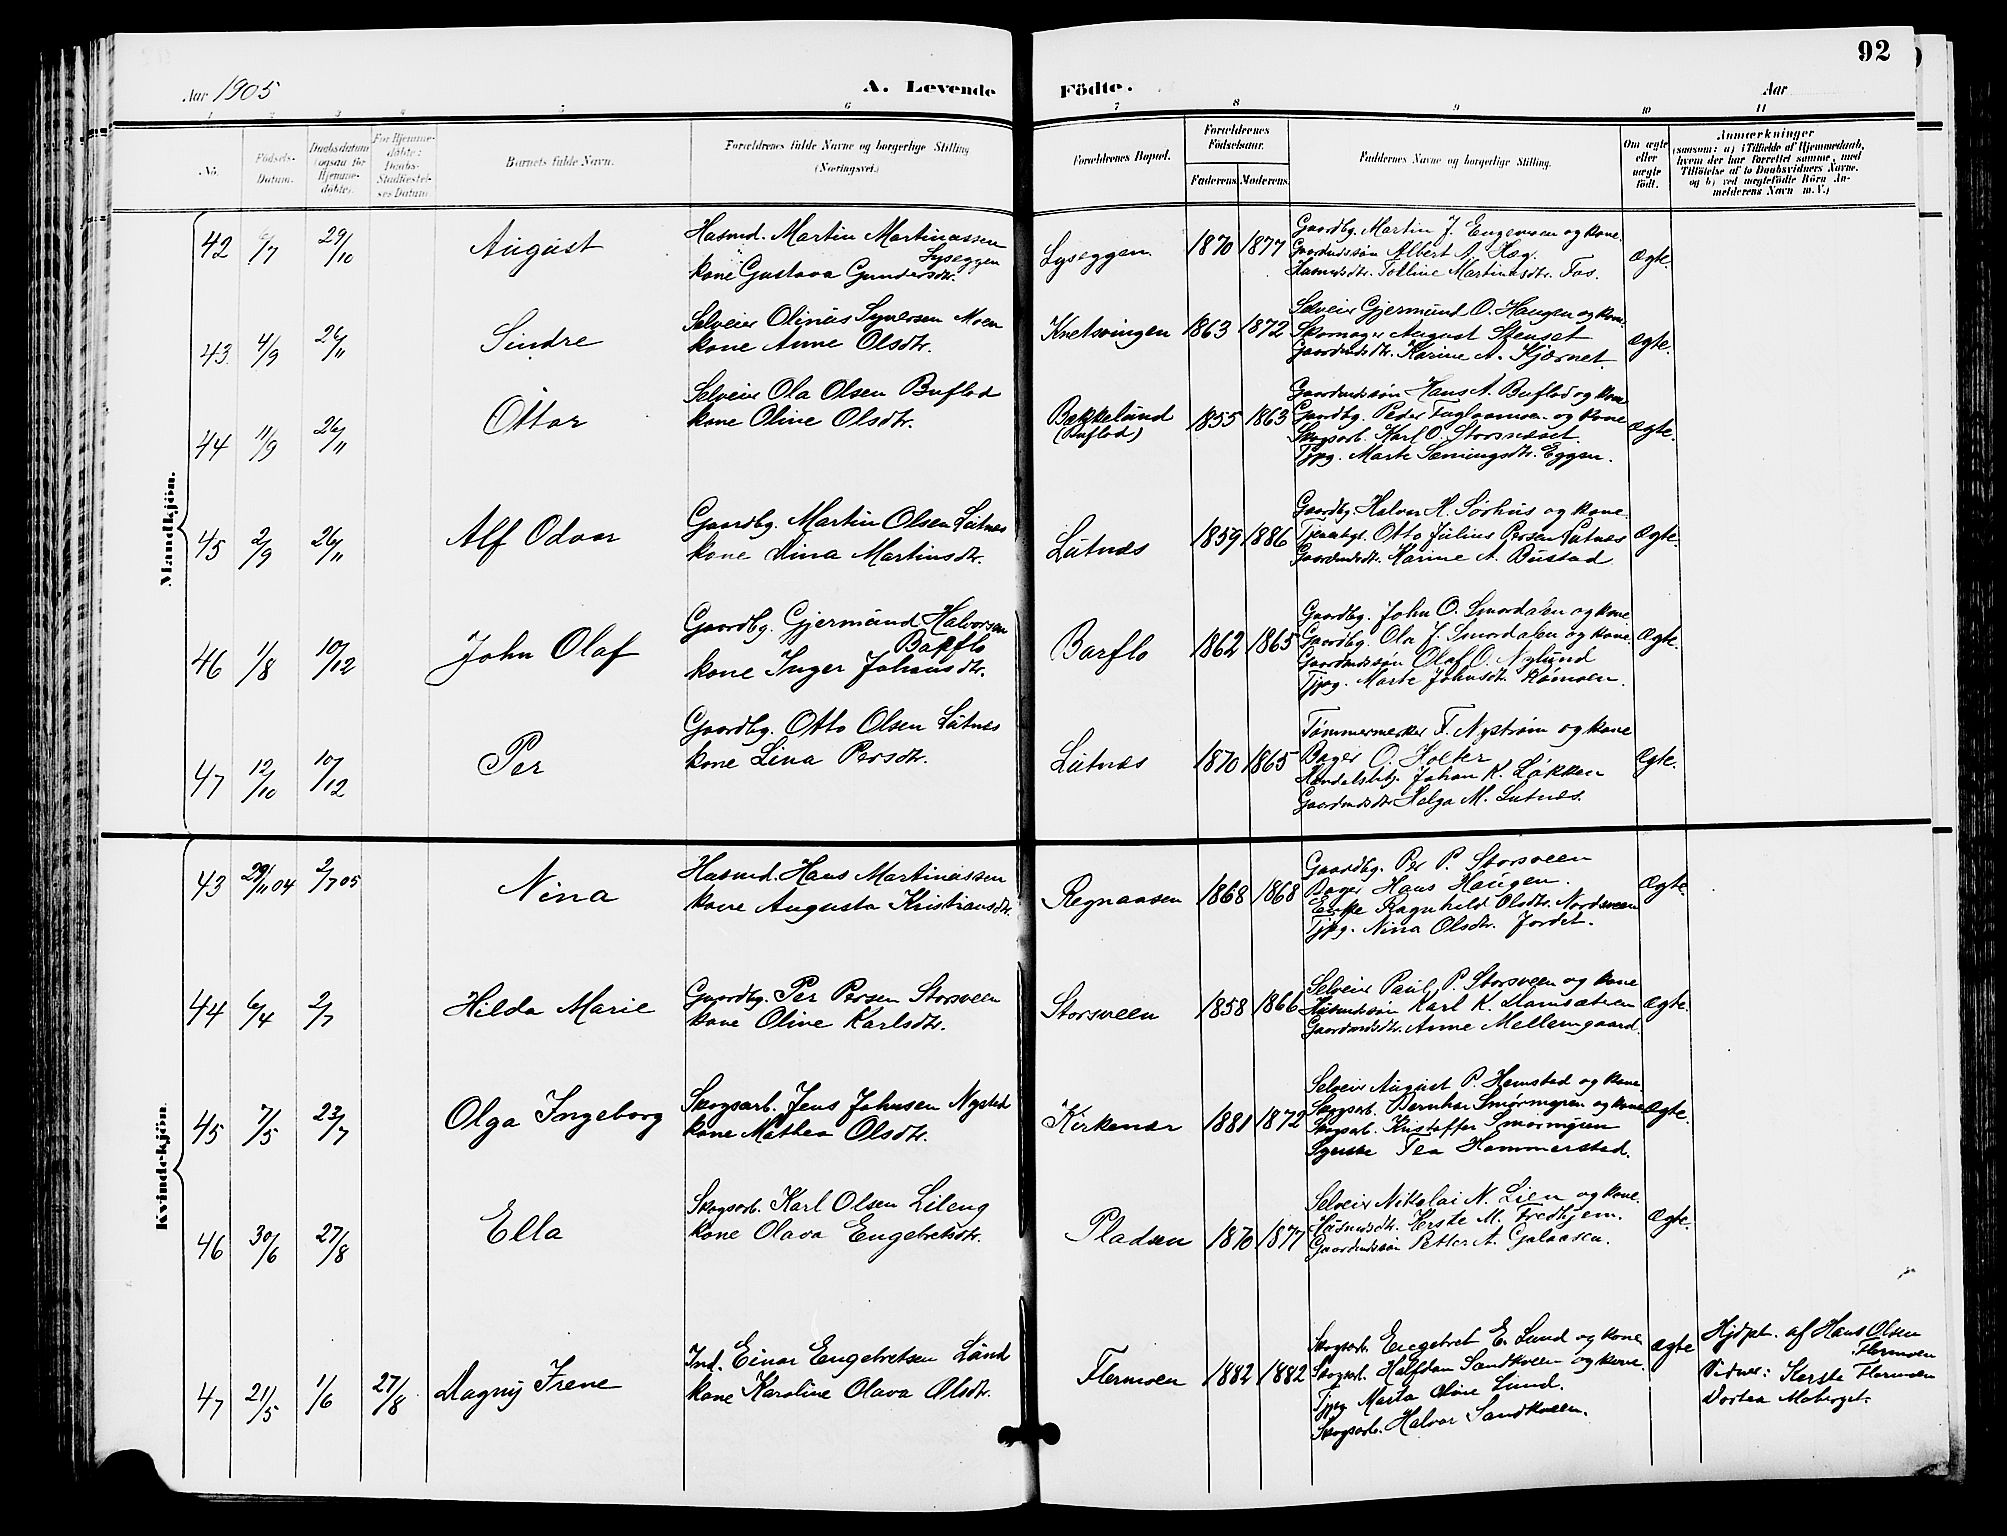 92
Aar 1905
A. Levende
Födte.
Aar
1 2 3 4 5 6 7 8 9 10 11
No.
Födsels-Datum.
Daabsdatum (ogsaa for Hjemme-döbte).
For Hjemme-döbte: Daabs-Stadfæstel-ses Datum.
Barnets fulde Navn.
Forældrenes fulde Navne og borgerlige Stilling (Næringsvei.)
Forældrenes Bopæl.
Forældrenes Födselsaar.
Faderens. Moderens.
Faddernes Navne og borgerlige Stilling.
Om ægte eller uægte födt.
Anmærkninger
(saasom: a) i Tilfælde af Hjemmedaab, hvem der har forrettet samme, med Tilföielse af to Daabsvidners Navne, og b) ved uægtefödte Börn Anmelderens Navn m. V.)
Mandkjön.
42 6/7 29/10 August
Husmd. Martin Martinassen Lyseggen
kone Gustava Gundersdtr.
Lyseggen 1870 1877
Gaardbg. Martin J. Engemoen og kone.
Gaardmdssön Albert A. Hæg.
Husmdsdtr. Tolline Martinusdtr. Fos.
Ægte.
43. 4/9 26/11 Sindre
Selveier Olinus Syversen Moen
kone Anne Olsdtr.
Knetsvingen 1863 1872
Selveier Gjermund O. Haugen og kone.
Skomager August Stenset
Gaardmdsdtr. Karine A. Kjærnet.
Ægte.
44 11/9 26/11 Ottar
Selveier Ola Olsen Buflod
kone Oline Olsdtr.
Bækkelund (Buflod) 1855 1863
Gaardmdssön Hans A. Buflod og kone
Gaardbg. Peder Fuglaamoen og kone
Skogsarb. Karl O. Storsnæset.
Tjpg. Marte Sæmingsdtr. Eggen.
Ægte.
45 2/9 26/11 Alf Odvar
Gaardbg. Martin Olsen Lutnæs
kone Dina Martinsdtr.
Lutnæs 1859 1886
Gaardbg. Halvor H. Sørhus og kone.
Otto Julius Persen Lutnæs
Gaardmdsdtr. Karine A. Bustad
Ægte.
46 1/8 10/12 John Olaf
Gaardbg. Gjermund Halvorsen Barflo
kone Inger Johansdtr.
Barflo 1862 1865
Gaardbg. John O. Smordalen og kone
Gaardbg. Ola J. Smordalen og kone.
Gaardmdssön Olaf O. Nylund
Tjpg. Marte Johnsdtr. Rømoen.
Ægte.
47 12/10 10/12 Per
Gaardbg. Otto Olsen Lutnæs
kone Lina Persdtr.
Lutnæs 1870 1865
Tømmermerker F. Nystrøm og kone
Bager O. Holter
Handelsbetj. Johan K. Løkken
Gaardmdsdtr Helga M. Lutnæs.
Ægte.
Kvindekjön.
43 29/11 04 2/7 05 Nina
Husmd. Hans Martinussen
kone Augusta Kristiansdtr.
Regnaasen 1868 1868
Gaardbg. Per P. Storsveen
Bager Hans Haugen.
Enke Ragnhild Olsdtr. Nordsveen
Tjpg. Nina Olsdtr. Jordet.
Ægte.
44 6/4 2/7 Hilda Marie
Gaardbg. Per Persen Storsveen
kone Oline Karlsdtr.
Storsveen 1858 1866
Selveier Paul P. Storsveen og kone
Husmdssön Karl K. Damsætren
Gaardmdsdtr. Anne Mellemgaard.
Ægte.
45 7/5 23/7 Olga Ingeborg
Skogsarb. Jens Johnsen Nysted
kone Mathea Olsdtr.
Kirkenær 1881 1872
Selveier August P. Hemstad og kone.
Skogsarb. Bernhar Smørmyren og kone
Skogsarb. Kristoffer Smørmyren
Syerske Tea Hammerstad.
Ægte.
46 30/6 27/8 Ella
Skogsarb. Karl Olsen Lileng
kone Olava Engebretsdtr.
Pladsen 1870 1877
Selveier Nikolai N. Lien og kone.
Husmdsdtr. Kerste M. Fredhjem.
Gaardmdssön Petter A. Galaasen.
Ægte.
47 21/5 1/6 27/8 Magny Irene
Ind. Einar Engebretsen Lund
kone Karoline Olava Olsdtr.
Flermoen 1882 1882
Skogsarb. Engebret E. Lund og kone
Skogsarb. Halfdan Sandkveen og kone.
Tjpg Marta Oline Lund.
Skogsarb. Halvor Sandkveen.
Ægte
Hjdpt. af Hans Olsen Flermoen
Vidner: Kerste Flermoen
Dortea Moberget.